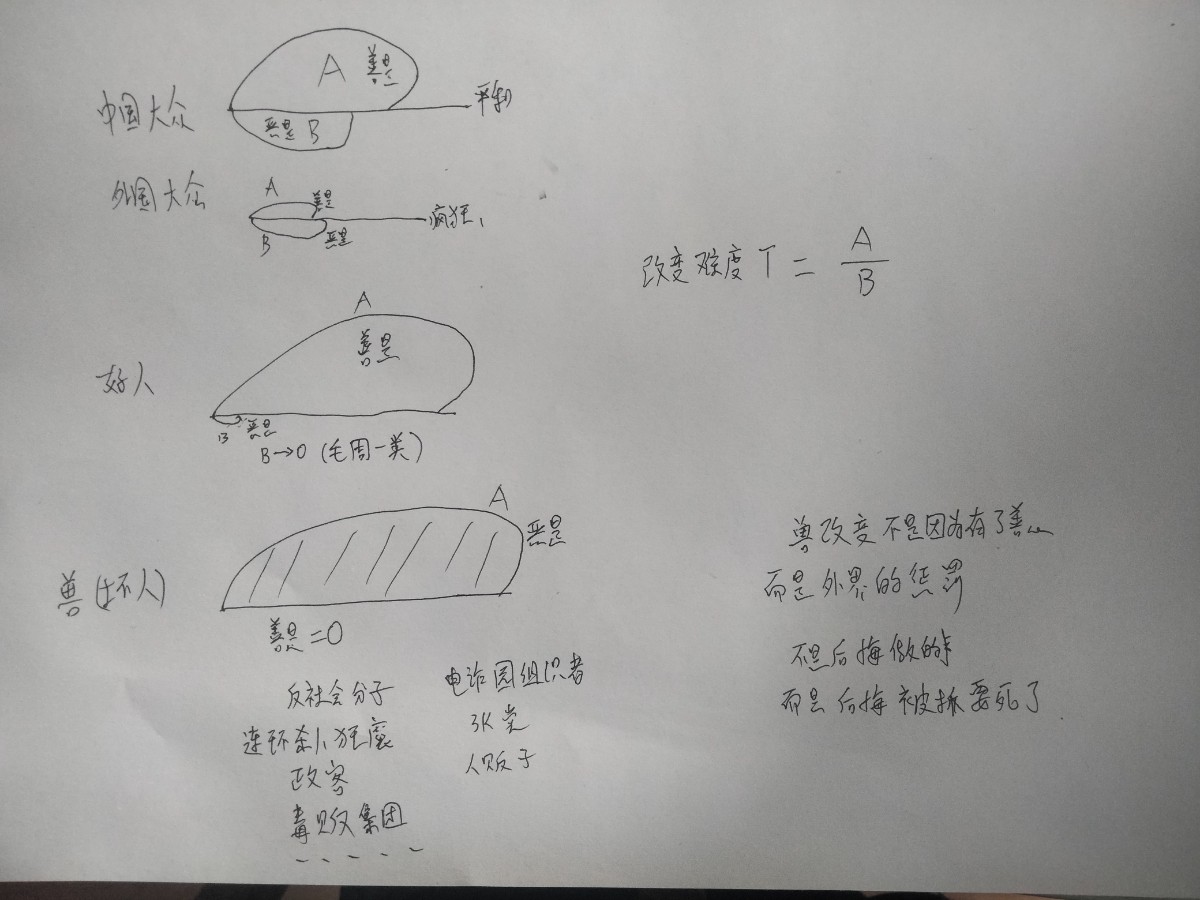 A 善是
中国大众
平和
恶是 B
外国大众
A
善是
疯狂
B
恶是
改变难度 T = A/B
A
善是
好人
B 恶是
B→0 (毛周一类)
A
恶是
兽(坏人)
善是=0
反社会分子
连环杀人狂魔
政客
毒贩集团
-----
电诈园组织者
3K党
人贩子
兽改变不是因为有了善心
而是外界的惩罚
不是后悔做的事
而是后悔被抓要死了